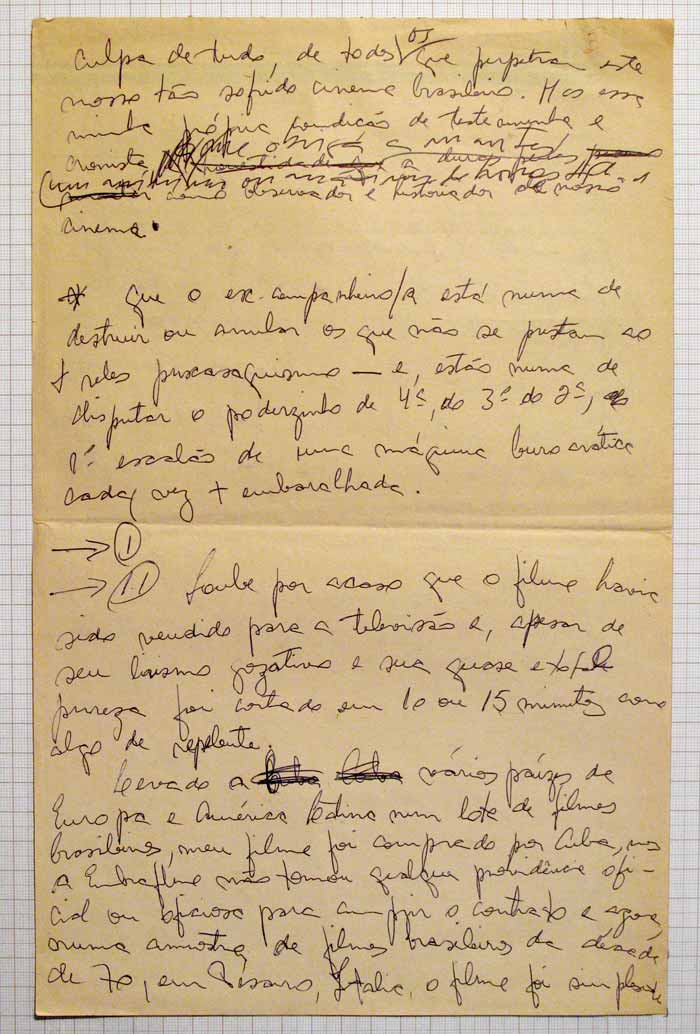 culpa de tudo, de todos os que perpetram este
nosso tão sofrido cinema brasileiro. Mas essa
minha própria condição de testemunha e
cronista me obriga a manter a duras penas
um mínimo ou máximo de honestidade
como observador e historiador de nosso
cinema.
* que o ex-companheiro/a está numa de
destruir ou anular os que não se prestam ao
+ reles puxasaquismo — e, estão numa de
disputar o poderzinho de 4º, do 3º do 2º, do
1º escalão de uma máquina burocrática
cada vez + embaralhada.
→ 1
→ 1.1 Soube por acaso que o filme havia
sido vendido para a televisão e, apesar de
seu lirismo gozativo e sua quase
pureza foi cortado em 10 ou 15 minutos como
algo de repelente.
Levado a vários países de
Europa e América Latina num lote de filmes
brasileiros, meu filme foi comprado por Cuba, mas
a Embrafilme não tomou qualquer providência ofi-
cial ou oficiosa para cumprir o contrato e agora,
numa amostra de filmes brasileiros da década
de 70, em Pesaro, Italia, o filme foi simplesmente